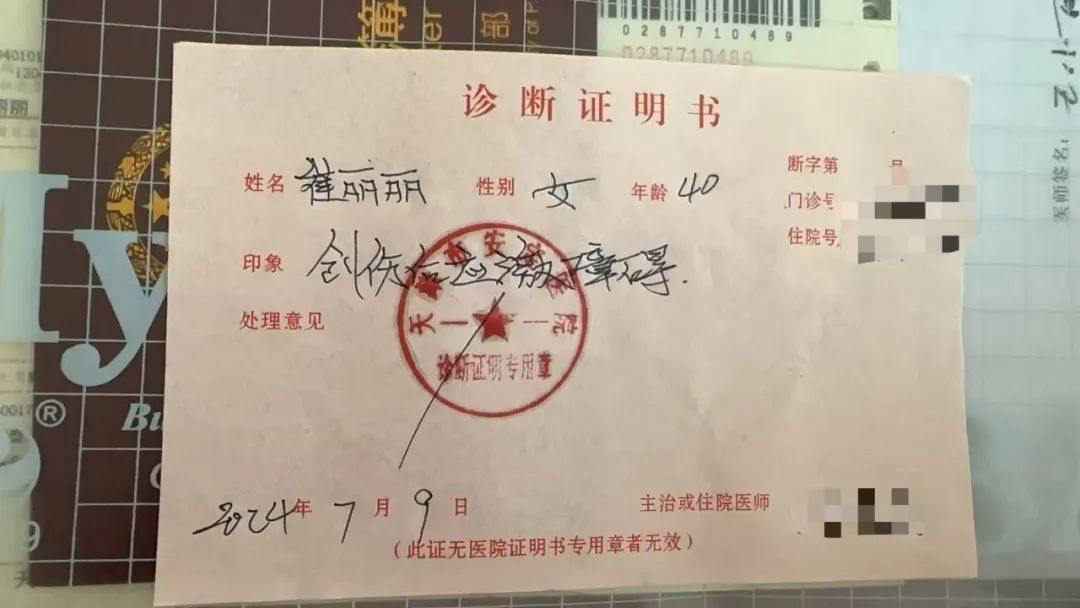 0287710489
0287710489
诊断证明书
姓名 崔丽丽 性别 女 年龄 40
断字第 号
门诊号
住院号
印象 创伤后应激障碍.
处理意见
天 安 医院
诊断证明专用章
2024年 7月 9日
主治或住院医师
(此证无医院证明书专用章者无效)
医师签名:
簿
部
y
Bu
®
0017
9